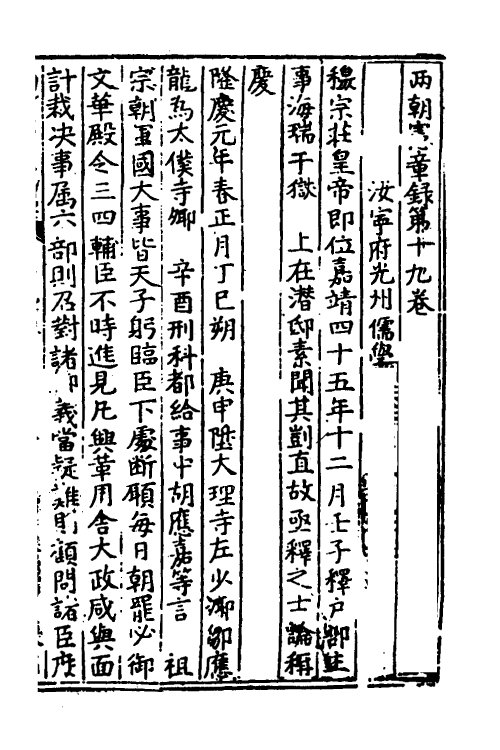 兩朝憲章録第十九卷
汝寧府光州儒學
穆宗莊皇帝即位嘉靖四十五年十二月壬子釋戶部主
事海瑞于獄　上在潛邸素聞其剴直故亟釋之士論稱
慶
隆慶元年春正月丁巳朔　庚申陞大理寺左少卿鄒應
龍爲太僕寺卿　辛酉刑科都給事中胡應嘉等言　祖
宗朝軍國大事皆天子躬臨臣下處斷願每日朝罷必御
文華殿令三四輔臣不時進見凡興革用舍大政咸與面
計裁决事屬六部則召對諸卿議當疑難則顧問諸臣庶